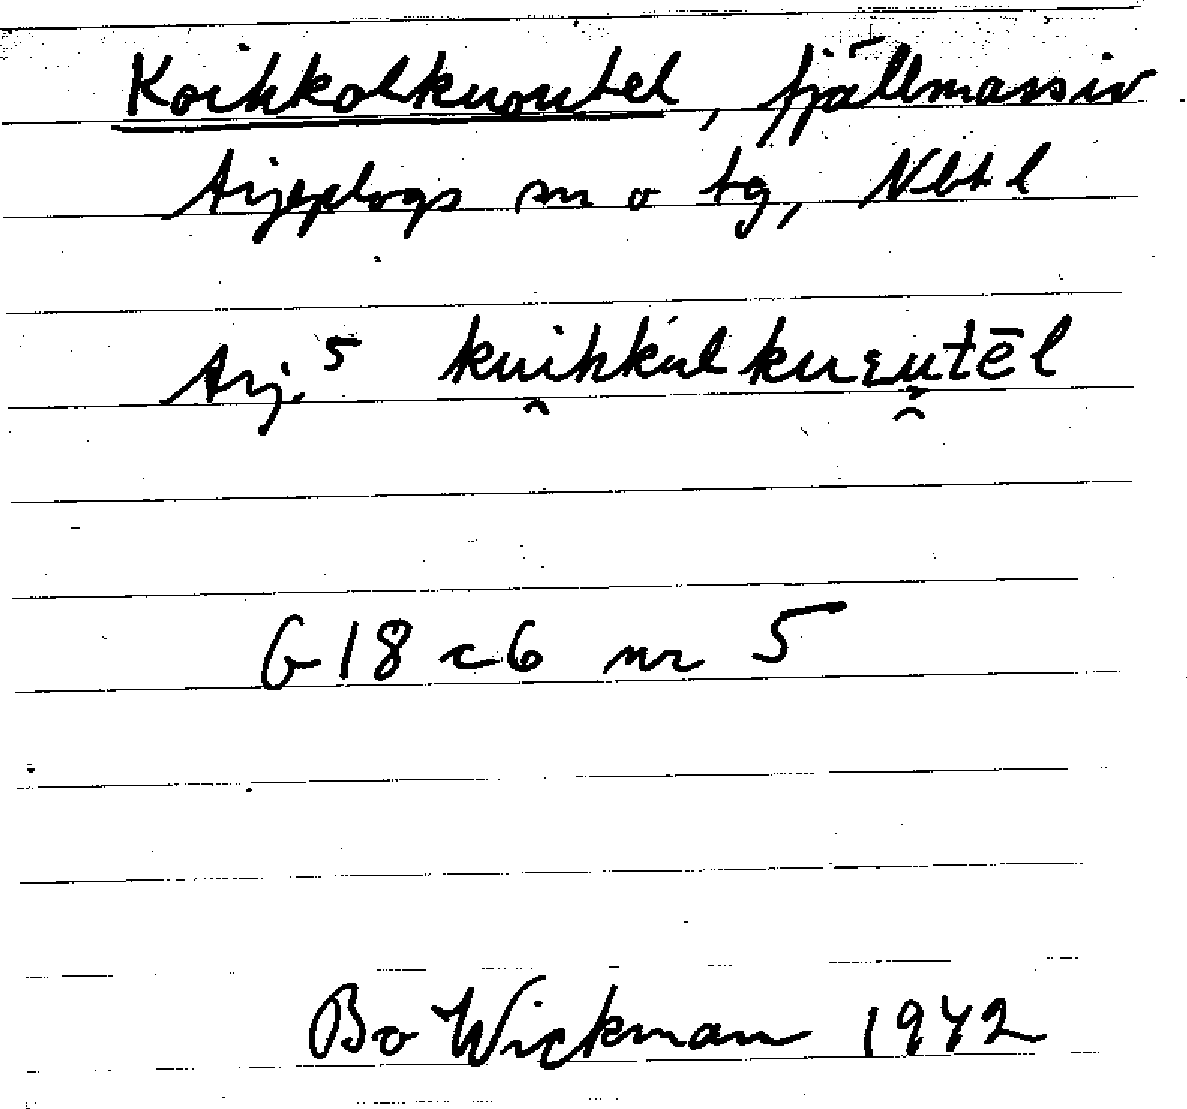 Koikkolkuoutel, fjällmassiv
Arjeplogs sn o tg, Nbt l
Arj.⁵ kui̯kkul kuεu̯tēl
G 18 c 6 nr 5
Bo Wickman 1942